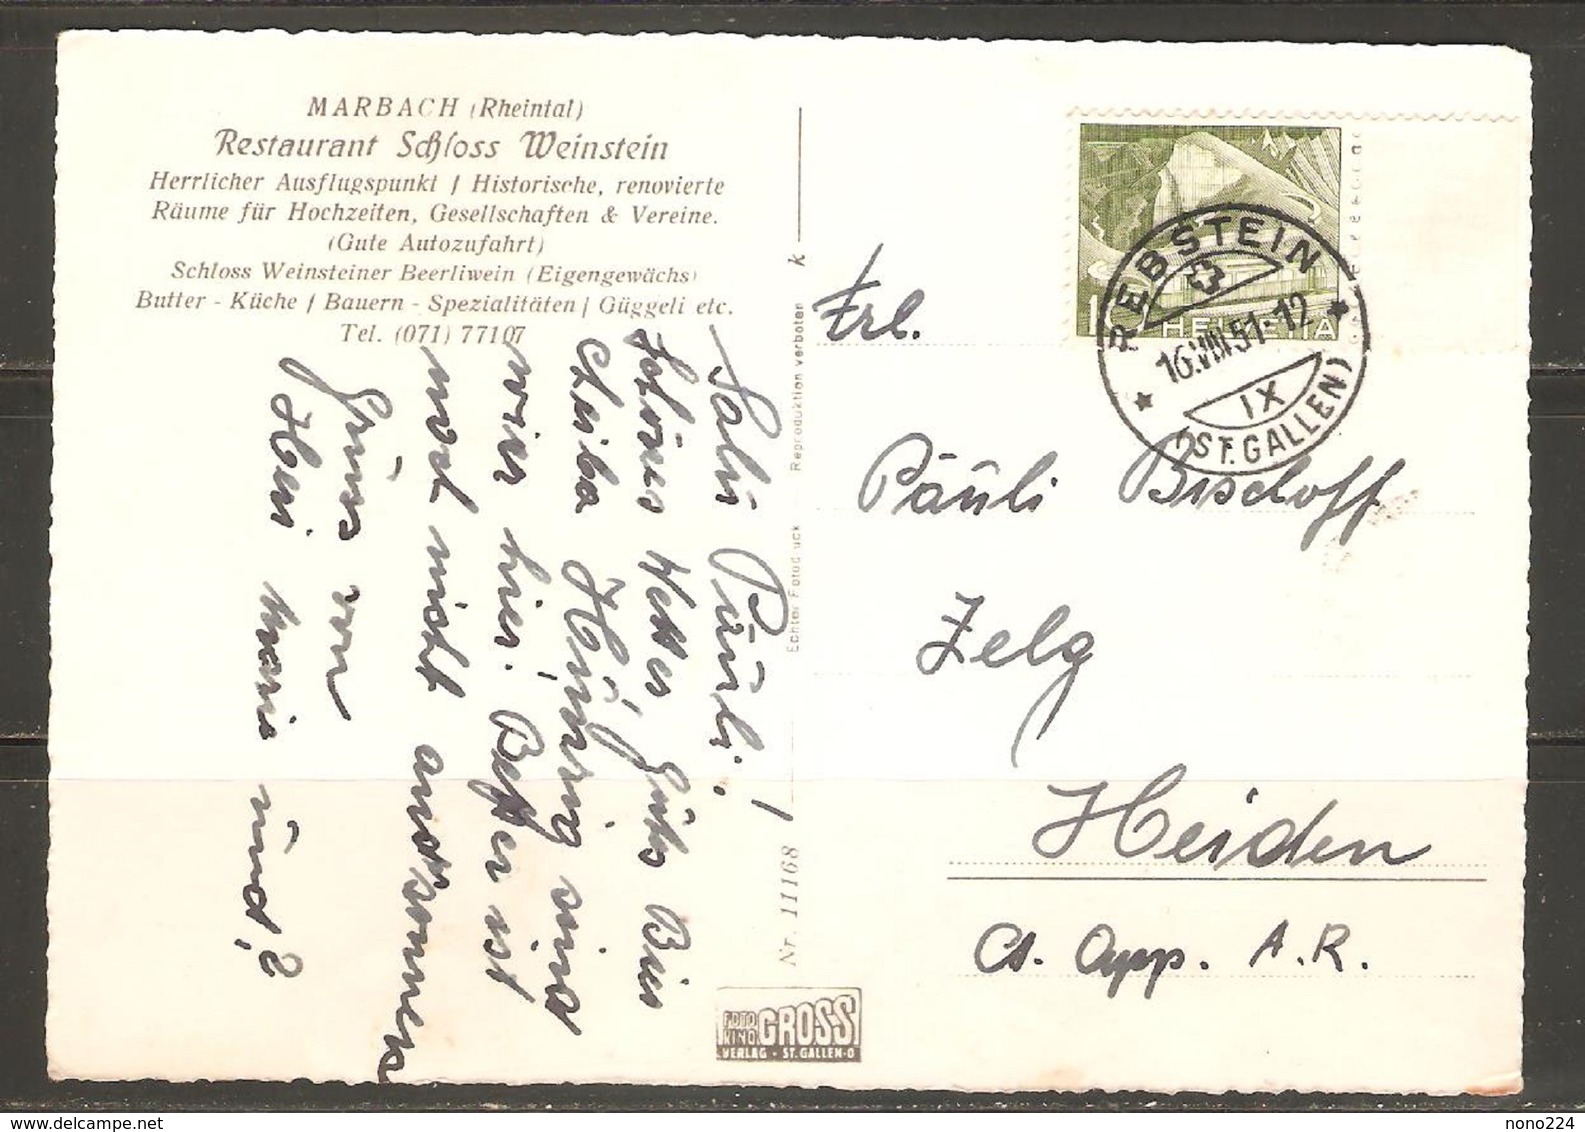 MARBACH (Rheintal)
Restaurant Schloss Weinstein
Herrlicher Ausflugspunkt / Historische, renovierte
Räume für Hochzeiten, Gesellschaften & Vereine.
(Gute Autozufahrt)
Schloss Weinsteiner Beerliwein (Eigengewächs)
Butter - Küche / Bauern - Spezialitäten / Güggeli etc.
Tel. (071) 77107
Salü Päuli!
Schönes Wetter, gutes Bier
cheiba Hunrig sind
wier hier. Better ist
noch nicht
Grüss von
und?
k
Reproduktion verboten
Echter Fotodruck
Nr. 11168
FOTO KINO GROSS
VERLAG - ST. GALLEN-O
HELVETIA
REBSTEIN
16.VIII.51-12
IX
(ST. GALLEN)
Frl.
Päuli Bischoff
Zelg
Heiden
Ct. App. A.R.
nono224